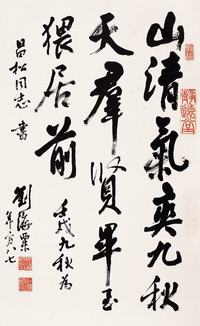 山清氣爽九秋
天群賢畢至
猥居前
壬戌九秋為
昌松同志書
劉海粟
年方八七